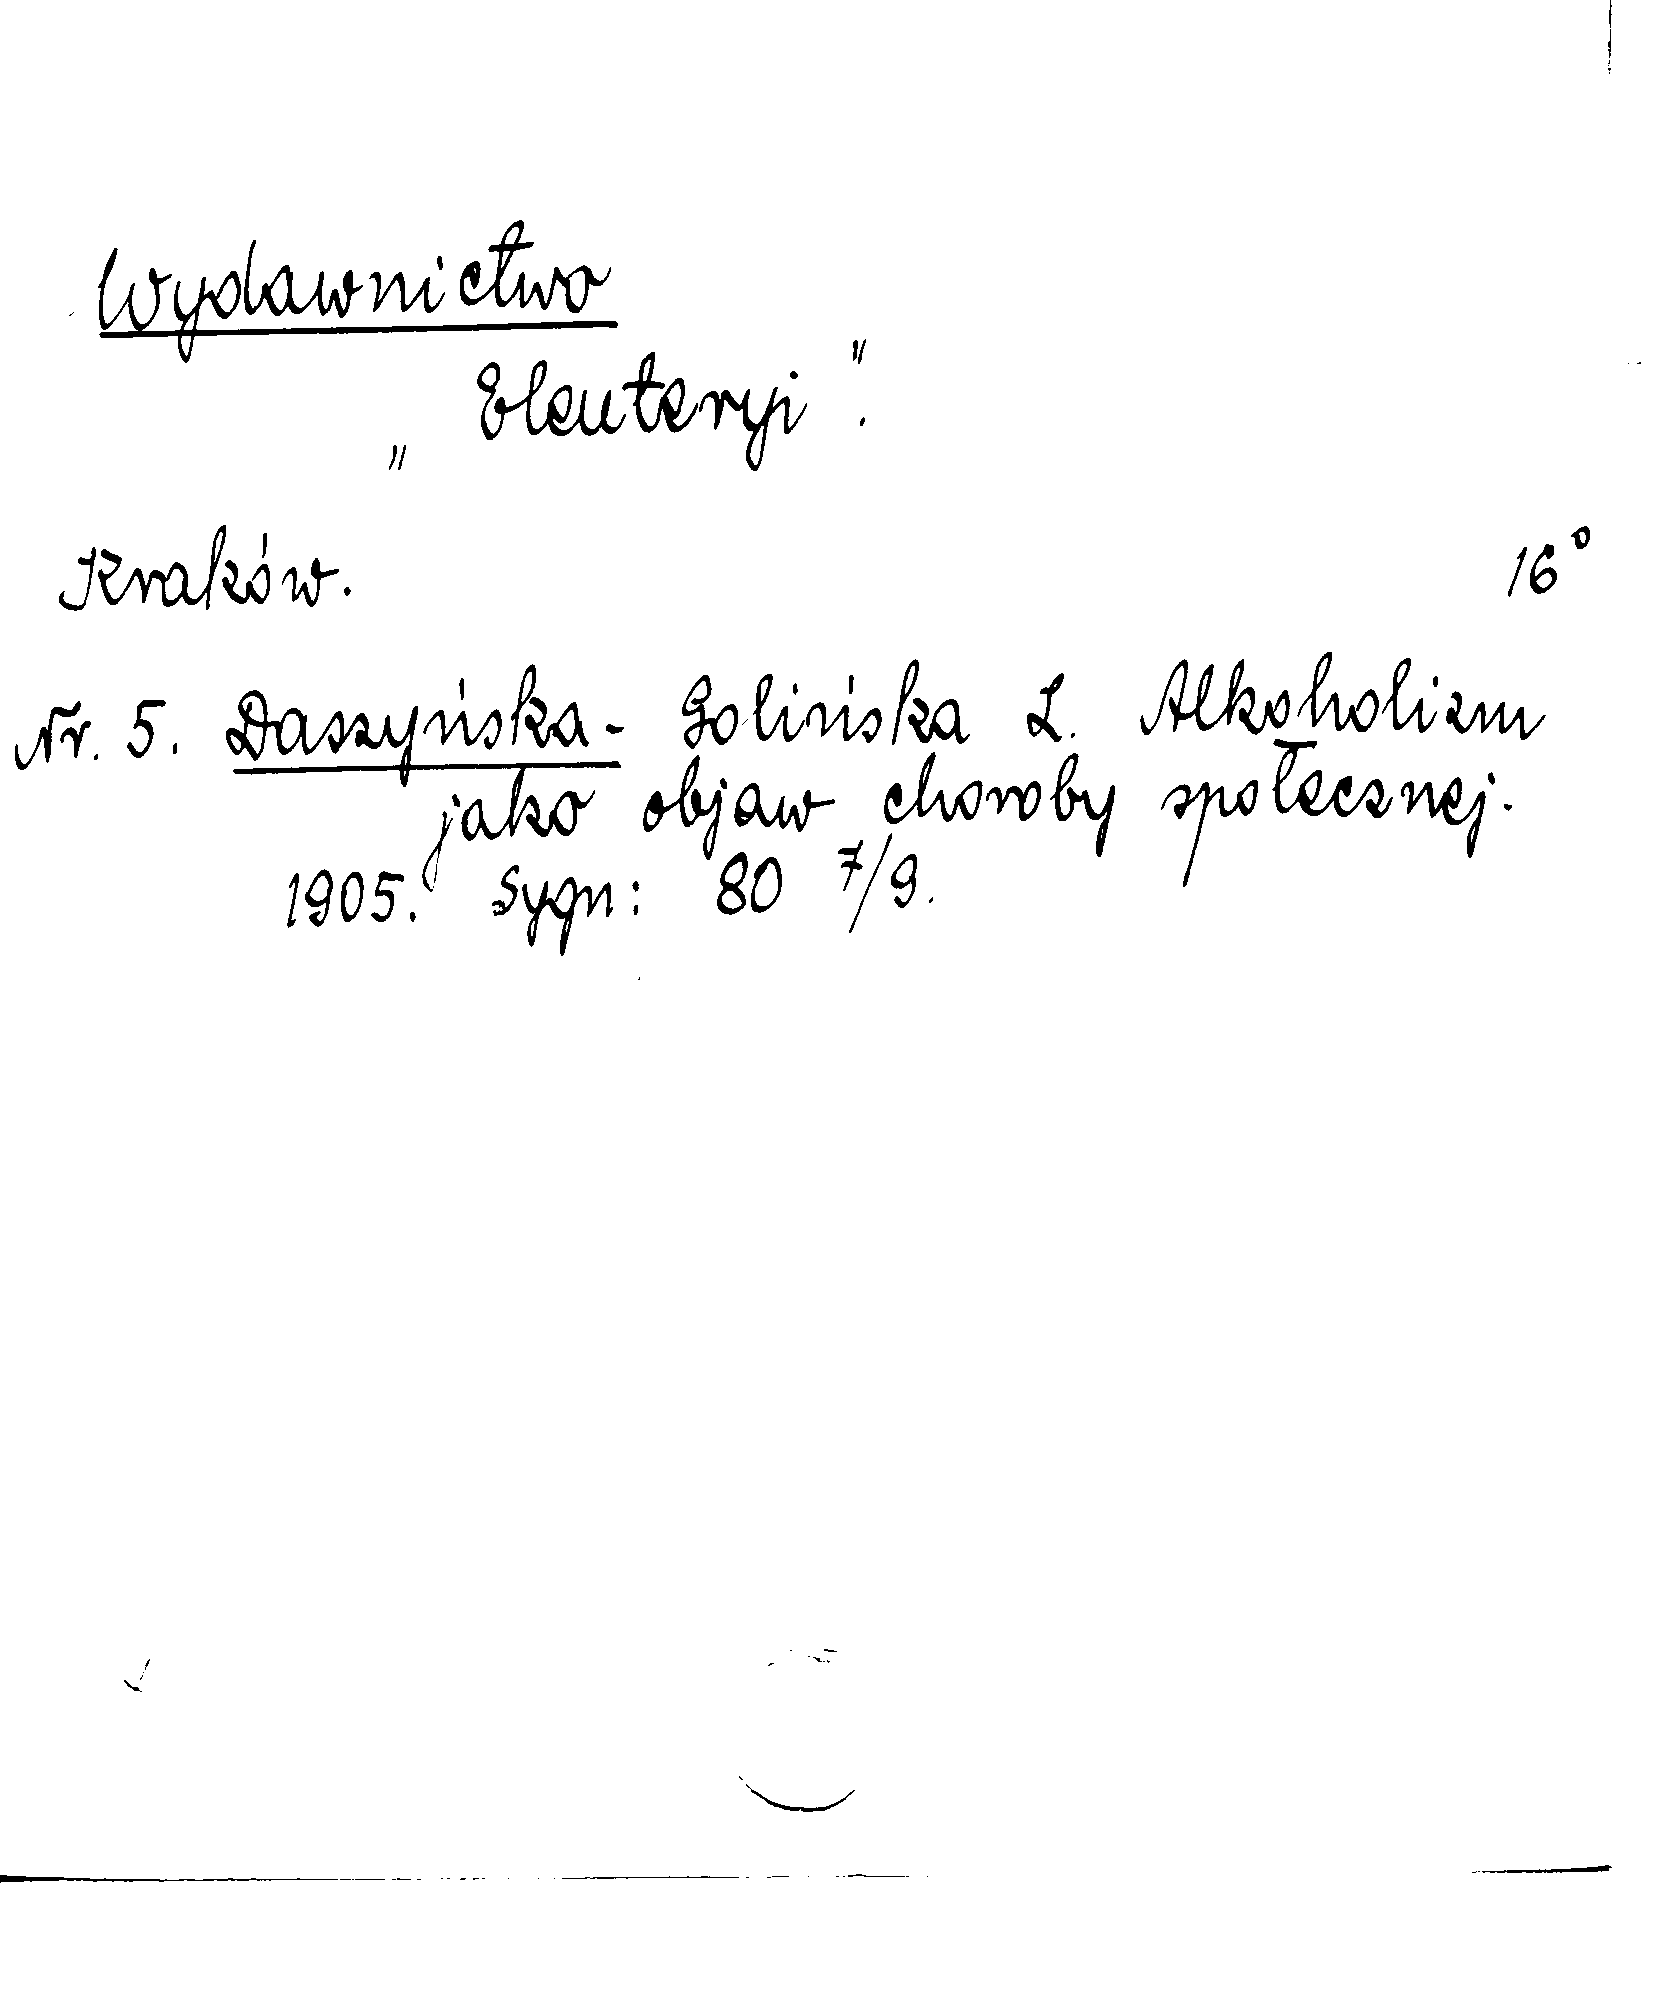 Wydawnictwo
„Eleuteryi".
Kraków. 16°
Nr. 5. Daszyńska- Golińska Z. Alkoholizm
jako objaw choroby społecznej.
1905. Sygn: 80 7/9.